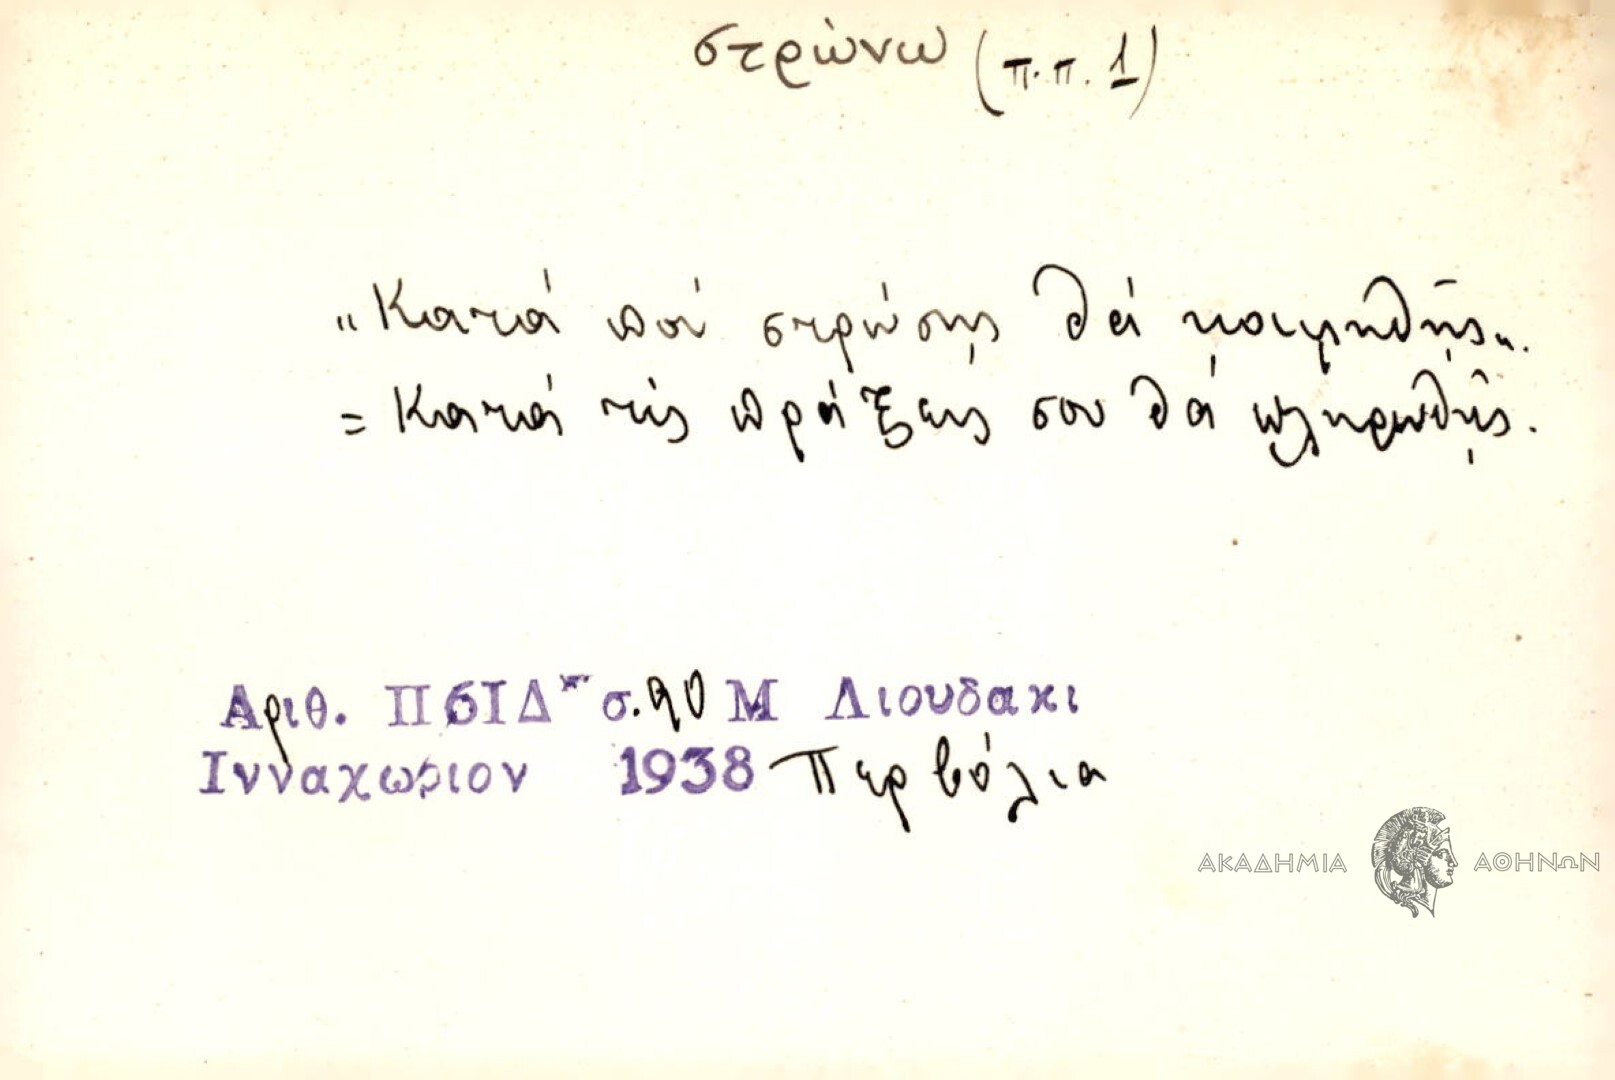 στρώνω (π.π. 1)
"Κατά πού στρώσης θά κοιμηθῆς".
= Κατά τίς πράξεις σου θά πληρωθῆς.
Αριθ. ΠϭΙΔ σ. 90 Μ Λιουδακι
Ινναχωριον 1938 Περβόλια
ΑΚΑΔΗΜΙΑ ΑΘΗΝΩΝ